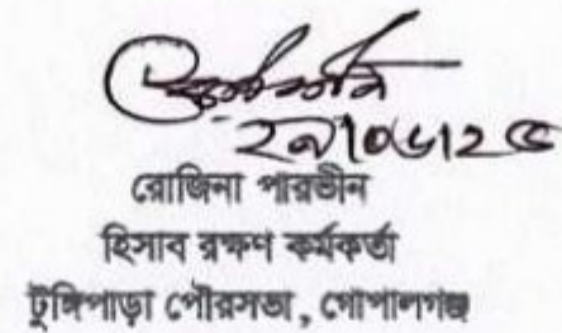 ২৯/০৬/২৫
রোজিনা পারভীন
হিসাব রক্ষণ কর্মকর্তা
টুঙ্গিপাড়া পৌরসভা, গোপালগঞ্জ